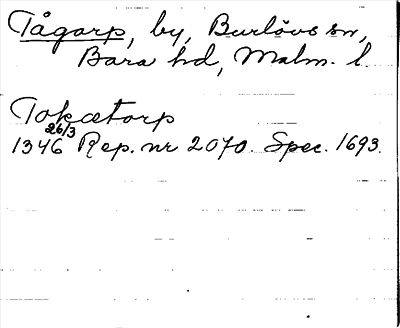 Tågarp, by, Burlövs sn,
Bara hd, Malm. l.
Tokætorp
1346 26/3 Rep. nr 2070. Spec. 1693.